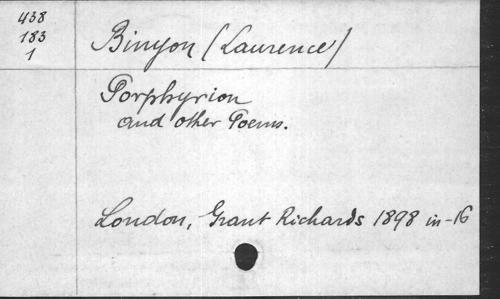 438
183
1
Binyon (Laurence)
Porphyrion
and other Poems.
London, Grant Richards 1898 in-16